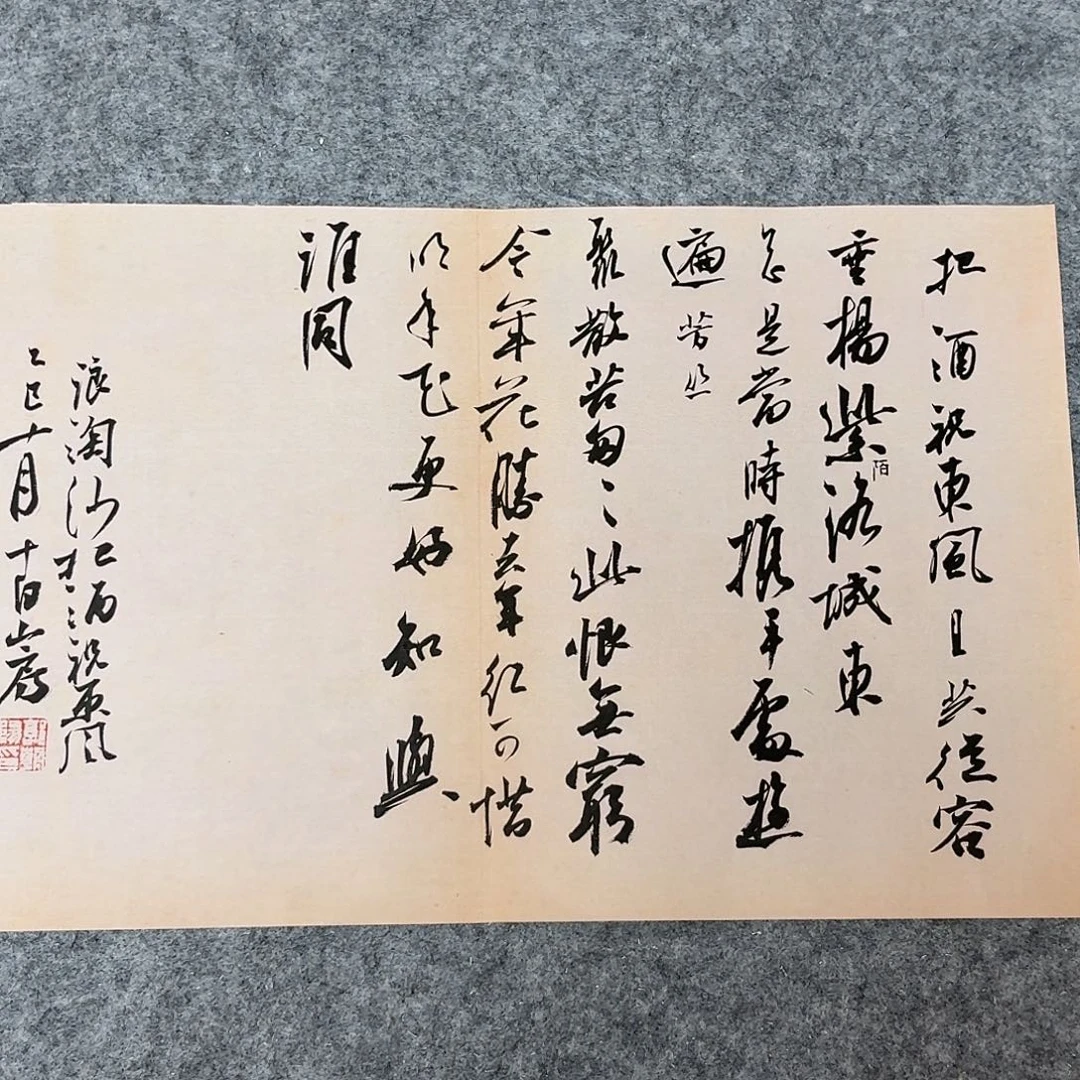 把酒祝東風且共從容
垂楊紫陌洛城東
總是當時攜手處遊
遍芳叢
聚散苦匆〻此恨無窮
今年花勝去年紅可惜
明年花更好知與
誰同
浪淘沙把酒祝東風
乙巳十月十日